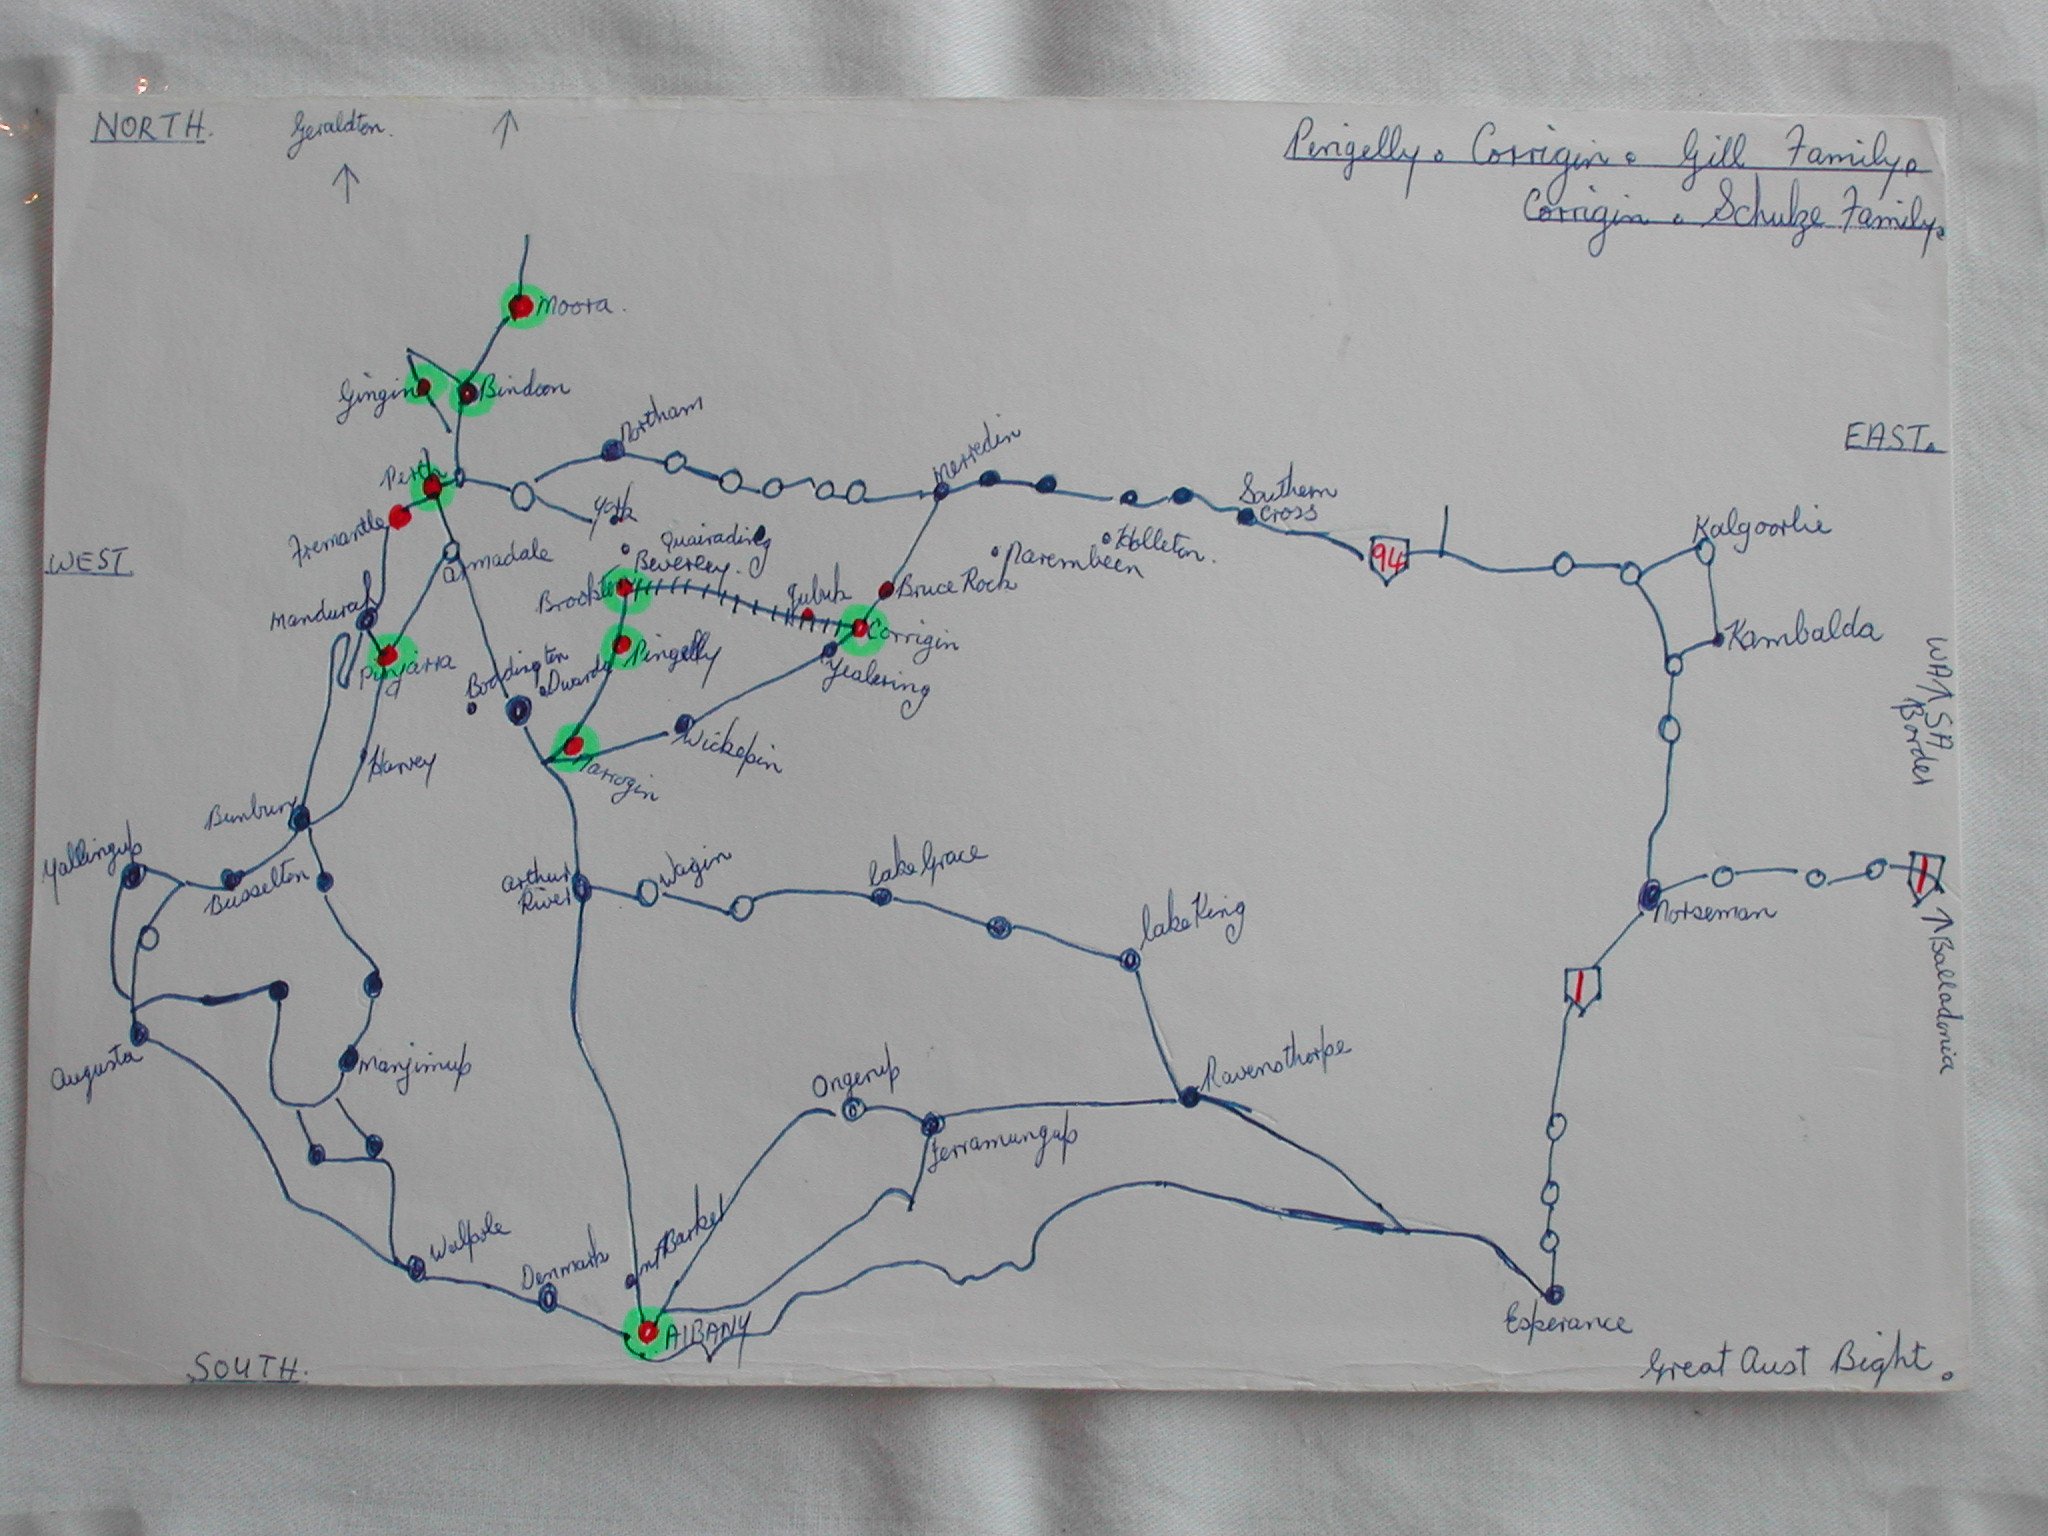 NORTH.
Geraldton.
Pingelly. Corrigin. Gill Family.
Corrigin. Schulze Family.
Moora.
Gingin
Bindoon
Northam
EAST.
Perth
Merredin
Southern
Cross
York
Fremantle
Quairading
Holleton.
94
Kalgoorlie
WEST
Armadale
Beverley.
Narembeen
Brookton
Jubuk
Bruce Rock
Mandurah
Corrigin
Kambalda
Pinjarra
Boddington
Dwarda
Pingelly
Yealering
WA SA
Border
Wickepin
Narrogin
Harvey
Bunbury
Yallingup
Busselton
Arthur
River
Wagin
Lake Grace
Lake King
Norseman
1
1
Balladonia
Augusta
Manjimup
Ongerup
Ravensthorpe
Jerramungup
Walpole
Denmark
Mt Barker
ALBANY
Esperance
SOUTH.
Great Aust Bight.